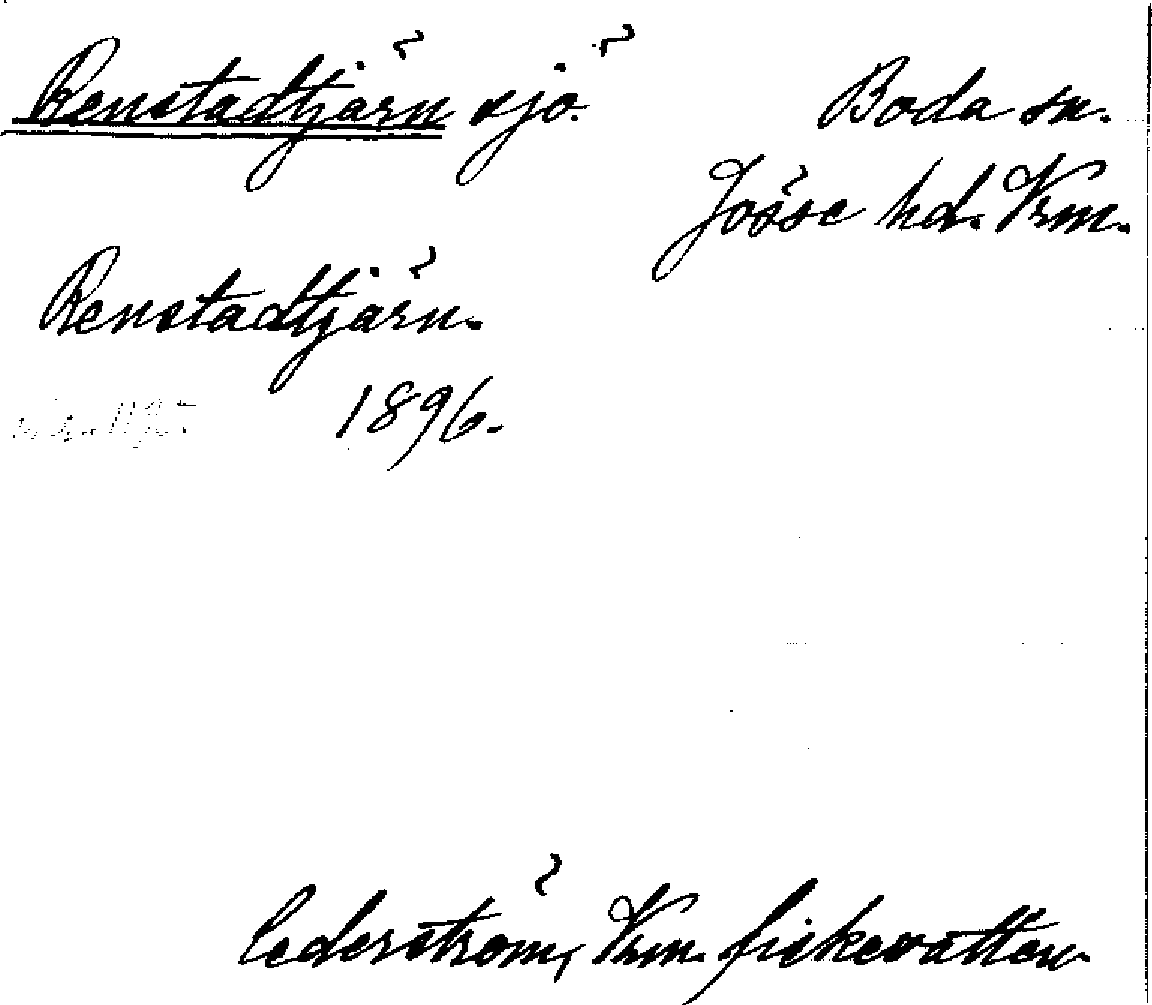 Renstadtjärn sjö.
Boda sn.
Jösse hd. Vrm.
Renstadtjärn.
1896.
Cederström, Vrm. fiskevatten.